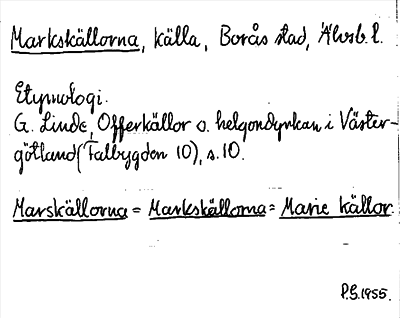 Markskällorna, källa, Borås stad, Älvsb. l.
Etymologi.
G. Linde, Offerkällor o. helgondyrkan i Väster-
götland (Falbygden 10), s. 10.
Marskällorna = Markskällorna = Marie källor.
P.G. 1955.